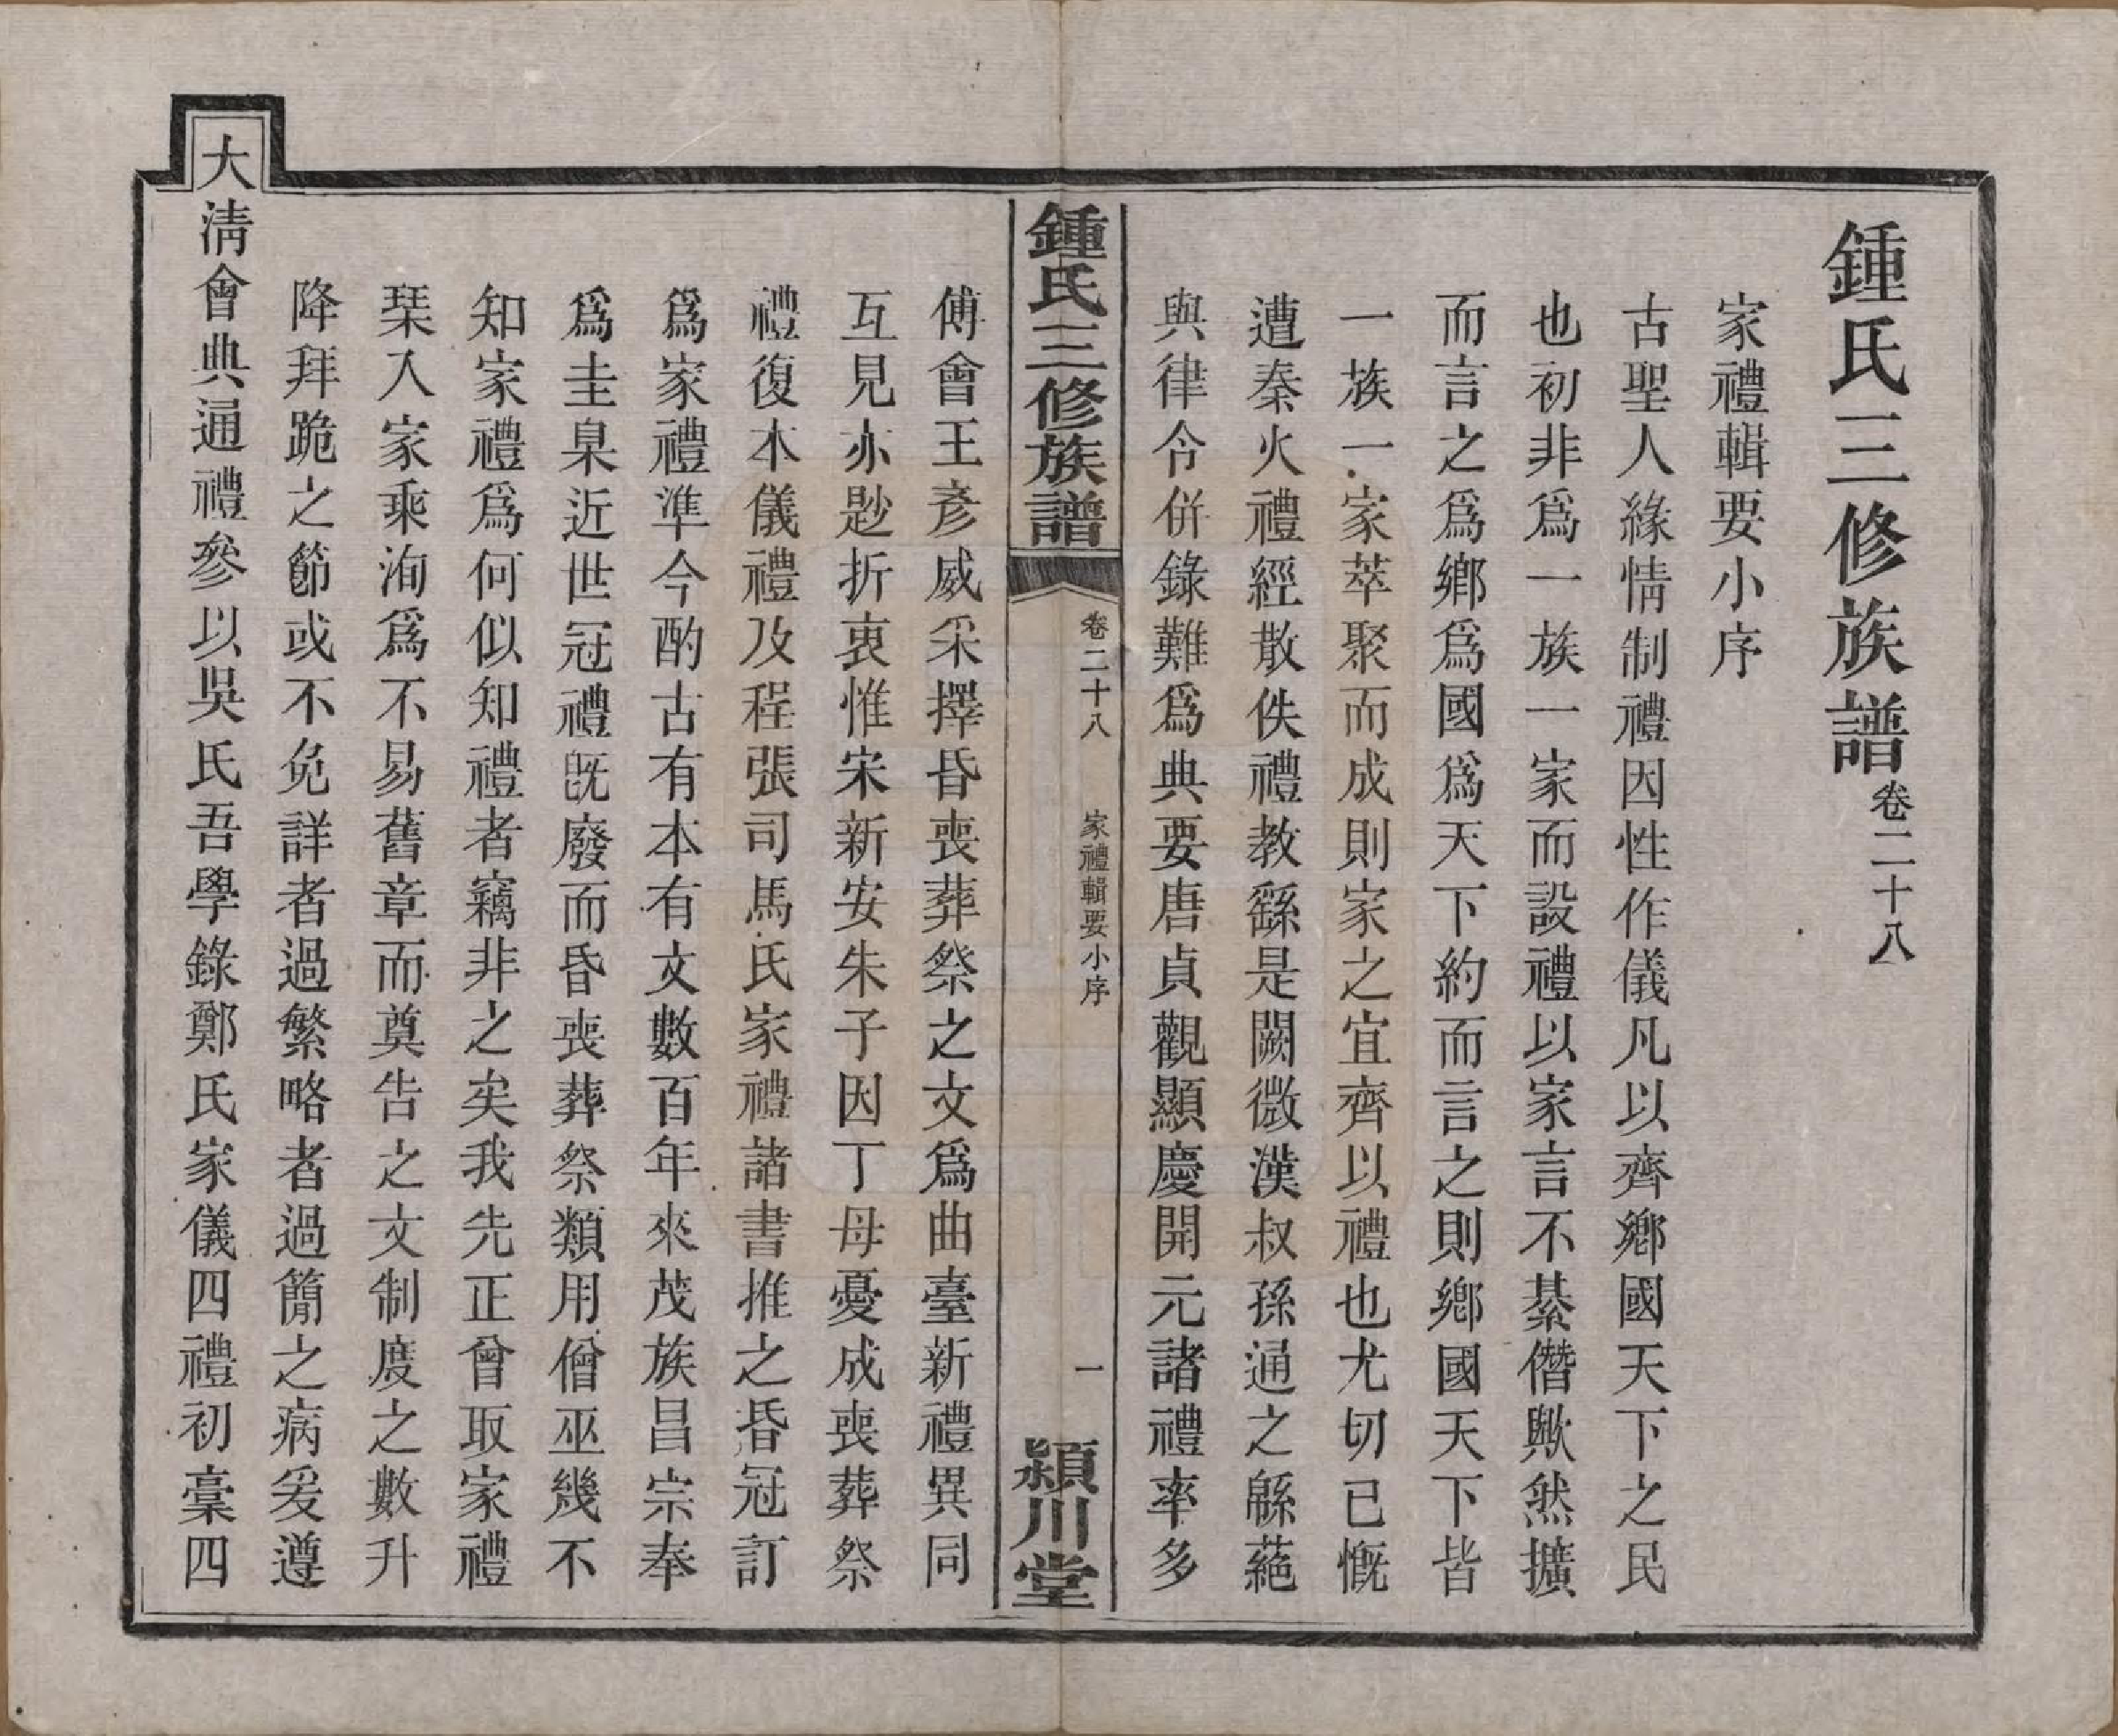 鍾氏三修族譜卷二十八
家禮輯要小序
古聖人緣情制禮因性作儀凡以齊鄉國天下之民
也初非爲一族一家而設禮以家言不綦僭歟然擴
而言之爲鄉爲國爲天下約而言之則鄉國天下皆
一族一家萃聚而成則家之宜齊以禮也尤切已慨
遭秦火禮經散佚禮教繇是闕微漢叔孫通之緜蕝
與律令併錄難爲典要唐貞觀顯慶開元諸禮率多
鍾氏三修族譜
卷二十八
家禮輯要小序
一
潁川堂
傅會王彥威采擇昏喪葬祭之文爲曲臺新禮異同
互見亦尟折衷惟宋新安朱子因丁母憂成喪葬祭
禮復本儀禮及程張司馬氏家禮諸書推之昏冠訂
爲家禮準今酌古有本有文數百年來茂族昌宗奉
爲圭臬近世冠禮既廢而昏喪葬祭類用僧巫幾不
知家禮爲何似知禮者竊非之矣我先正曾取家禮
琹入家乘洵爲不易舊章而奠告之文制度之數升
降拜跪之節或不免詳者過繁略者過簡之病爰遵
大清會典通禮參以吳氏吾學錄鄭氏家儀四禮初稾四